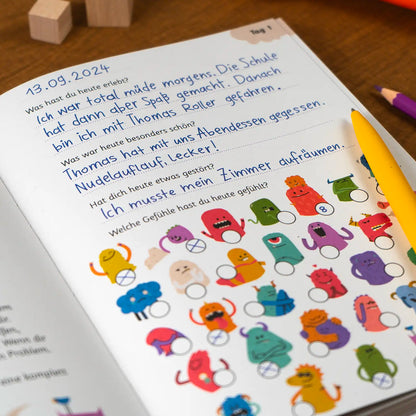 Tag 1
13.09.2024
Was hast du heute erlebt?
Ich war total müde morgens. Die Schule
hat dann aber Spaß gemacht. Danach
bin ich mit Thomas Roller gefahren.
Was war heute besonders schön?
Thomas hat mit uns Abendessen gegessen.
Nudelauflauf. Lecker!
Hat dich heute etwas gestört?
Ich musste mein Zimmer aufräumen.
Welche Gefühle hast du heute gefühlt?
Wenn dir
Problem.
komplett